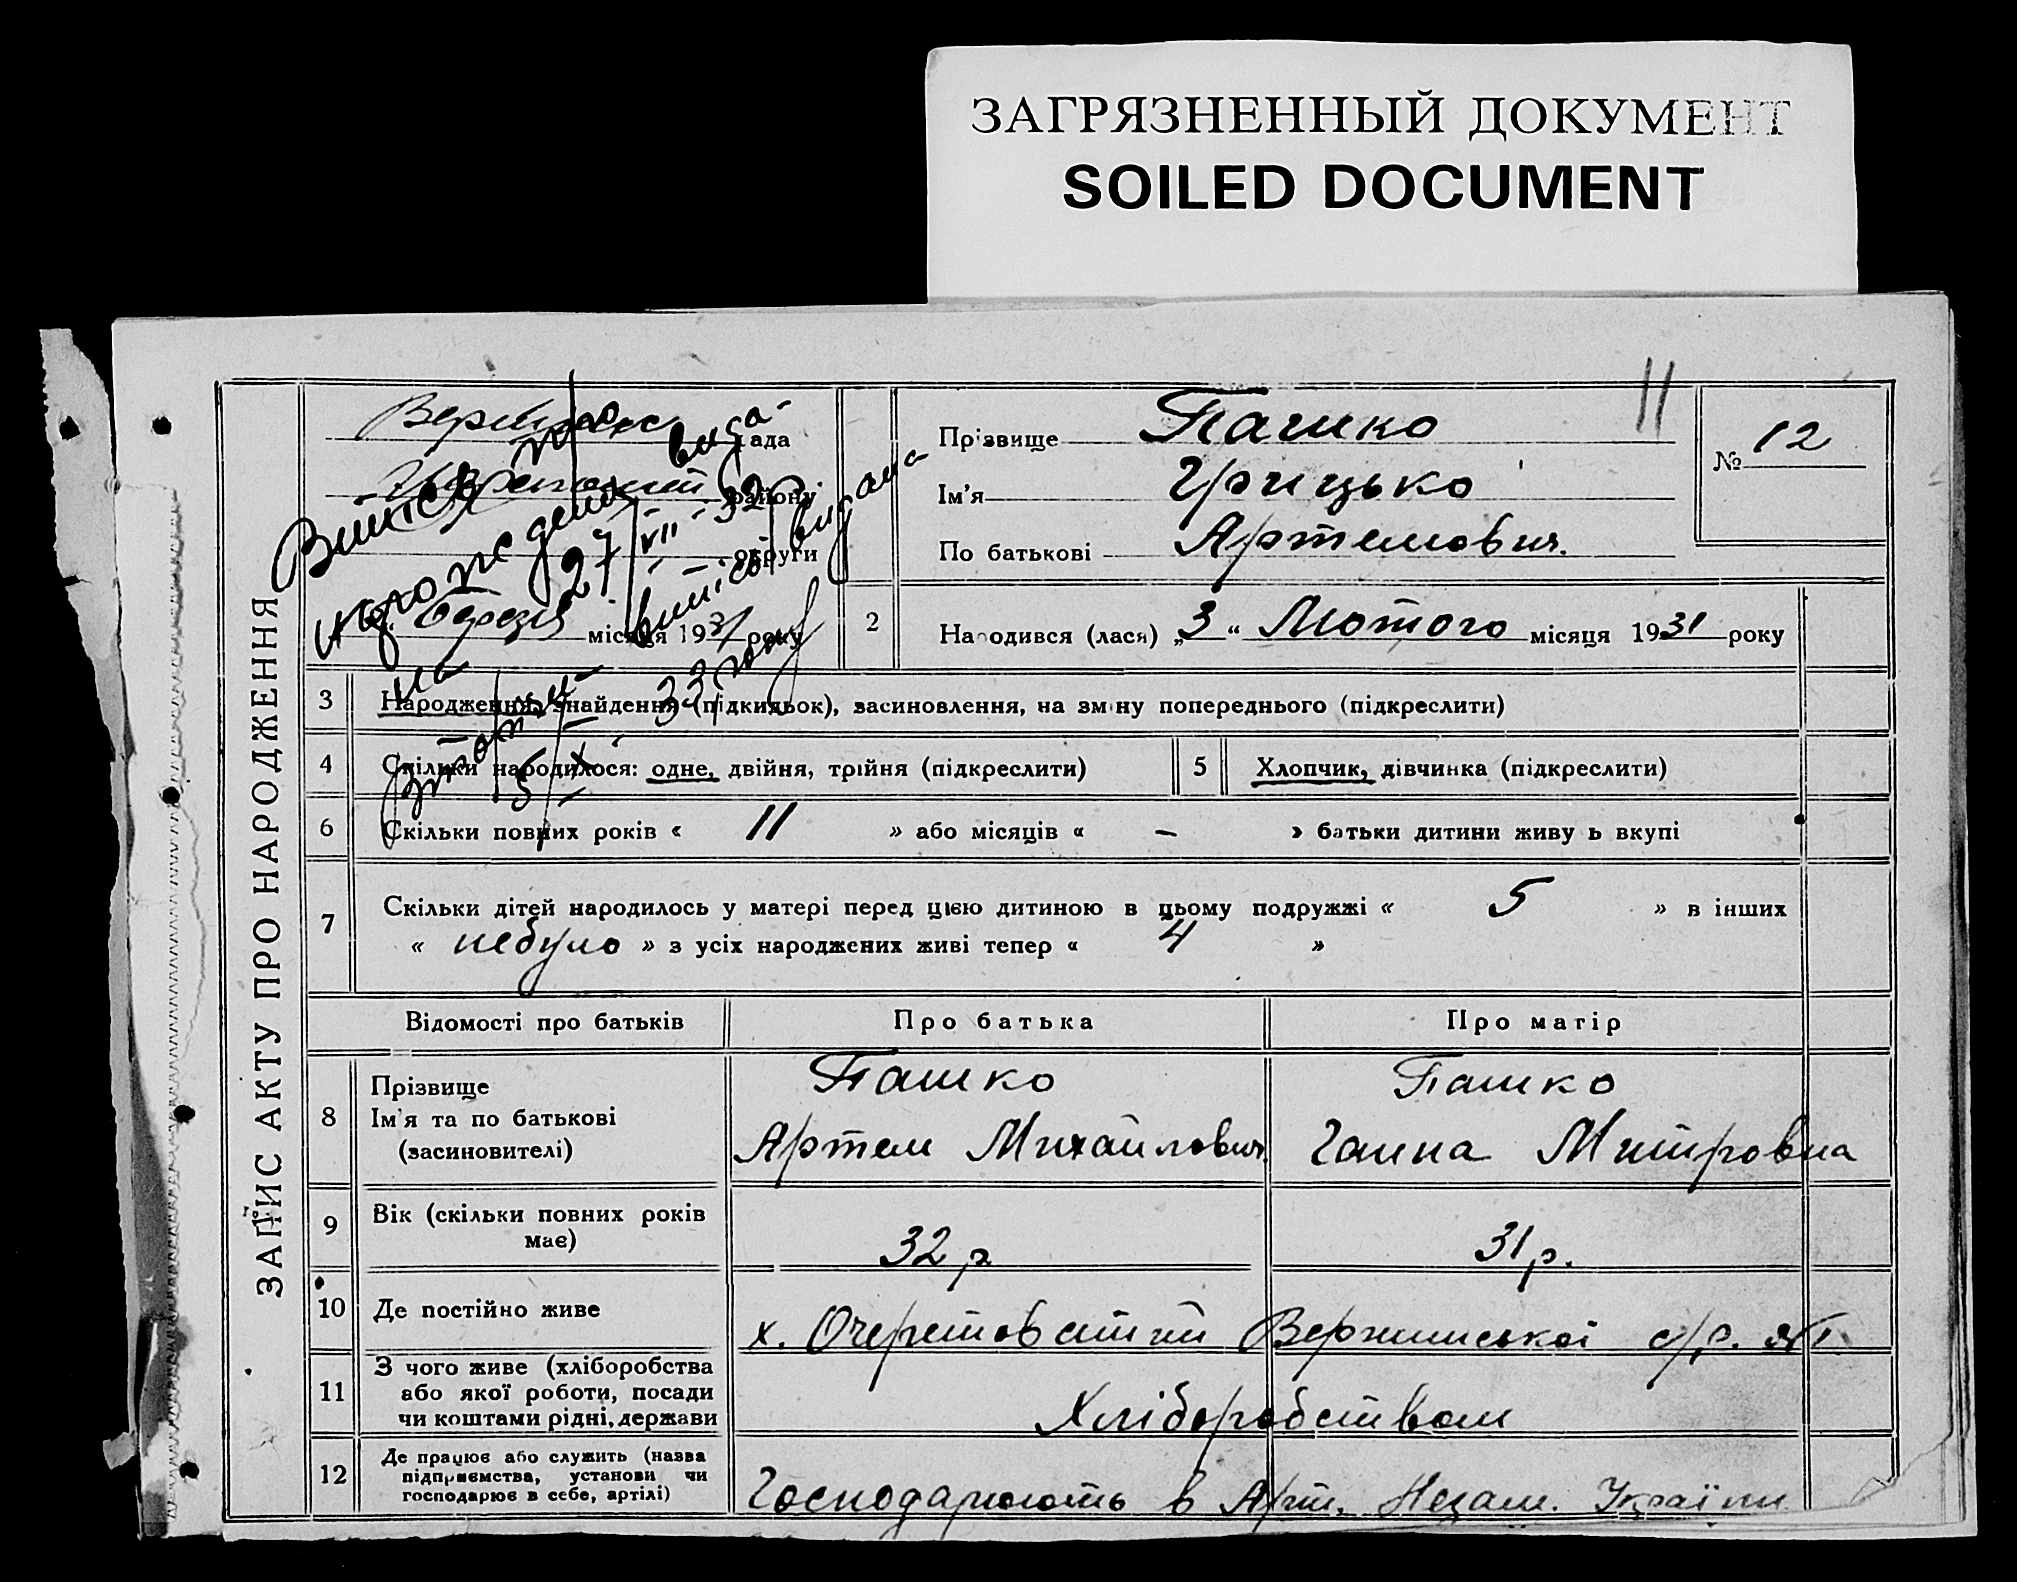 ЗАГРЯЗНЕННЫЙ ДОКУМЕНТ
SOILED DOCUMENT
ЗАПИС АКТУ ПРО НАРОДЖЕННЯ
11
ада
району
округи
Березня місяця 1931 року
Виписка про
народжен. вида-
на
27/VII-32
виписо видана
5/X 33 году
Прізвище Пашко
Ім'я Грицько
По батькові Артемович.
№ 12
2 Народився (лася) „3“ Лютого місяця 1931 року
3 Народження, знайдення (підкидьок), засиновлення, на зміну попереднього (підкреслити)
4 Скільки народилося: одне, двійня, трійня (підкреслити)
5 Хлопчик, дівчинка (підкреслити)
6 Скільки повних років « 11 » або місяців « – » батьки дитини живуть вкупі
7 Скільки дітей народилось у матері перед цією дитиною в цьому подружжі « 5 » в інших
« небуло » з усіх народжених живі тепер « 4 »
Відомості про батьків Про батька Про матір
8 Прізвище Пашко Пашко
Ім'я та по батькові Артем Михайлович. Ганна Митровна
(засиновителі)
9 Вік (скільки повних років
має) 32 р 31 р.
10 Де постійно живе х. Очеретоватий с/р.
11 З чого живе (хліборобства
або якої роботи, посади
чи коштами рідні, держави Хліборобством
12 Де працює або служить (назва
підприємства, установи чи
господарює в себе, артілі) Господарюють в Арт. Незам. України